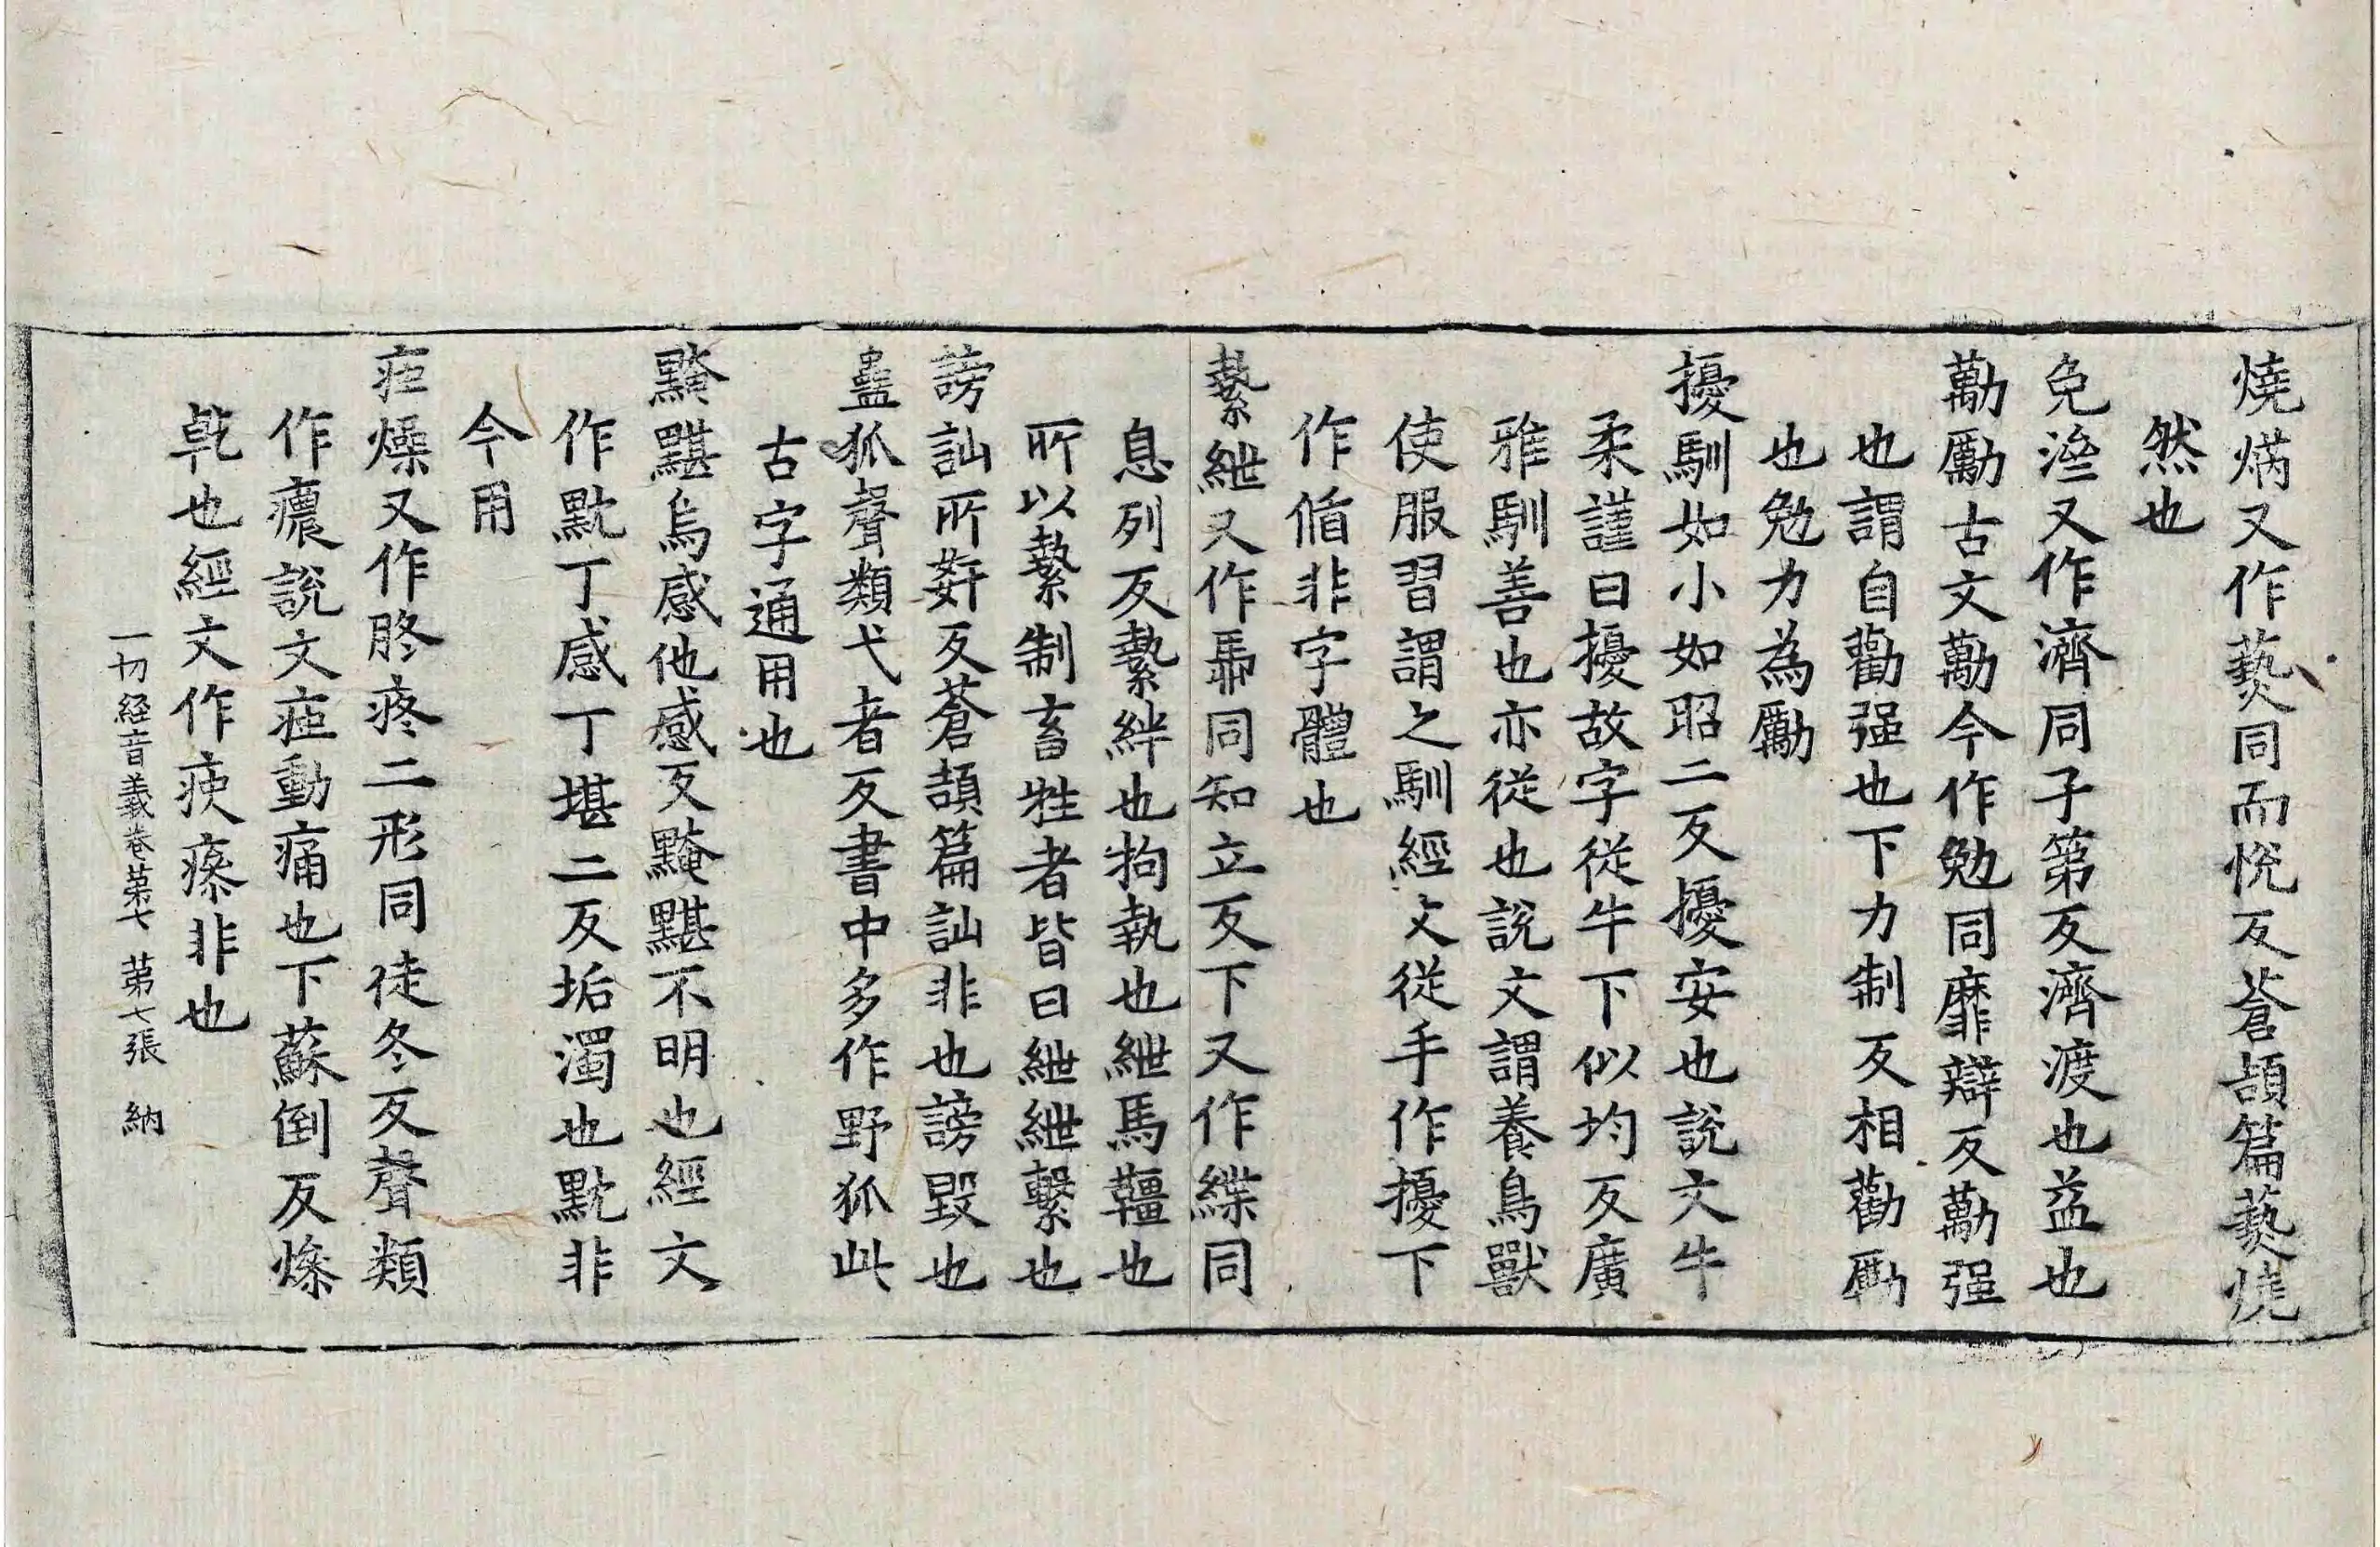 燒焫又作爇同而悅反蒼頡篇爇燒
然也
免濟又作濟同子第反濟渡也益也
勱勵古文勱今作勉同靡辯反勱強
也謂自勸强也下力制反相勸勵
也勉力為勵
擾馴如小如昭二反擾安也說文牛
柔謹曰擾故字從牛下似均反廣
雅馴善也亦從也說文謂養鳥獸
使服習謂之馴經文從手作擾下
作偱非字體也
縶紲又作馽同知立反下又作緤同
息列反縶絆也拘執也紲馬韁也
所以縶制畜牲者皆曰紲紲繫也
謗訕所姧反蒼頡篇訕非也謗毀也
蠱狐聲類弋者反書中多作野狐此
古字通用也
黤黮烏感他感反黤黮不明也經文
作黕丁感丁堪二反垢濁也黕非
今用
疼燥又作胮疼二形同徒冬反聲類
作癑說文疼動痛也下蘇倒反燥
乹也經文作瘓瘵非也
一切経音義巻苐七 苐七張 納